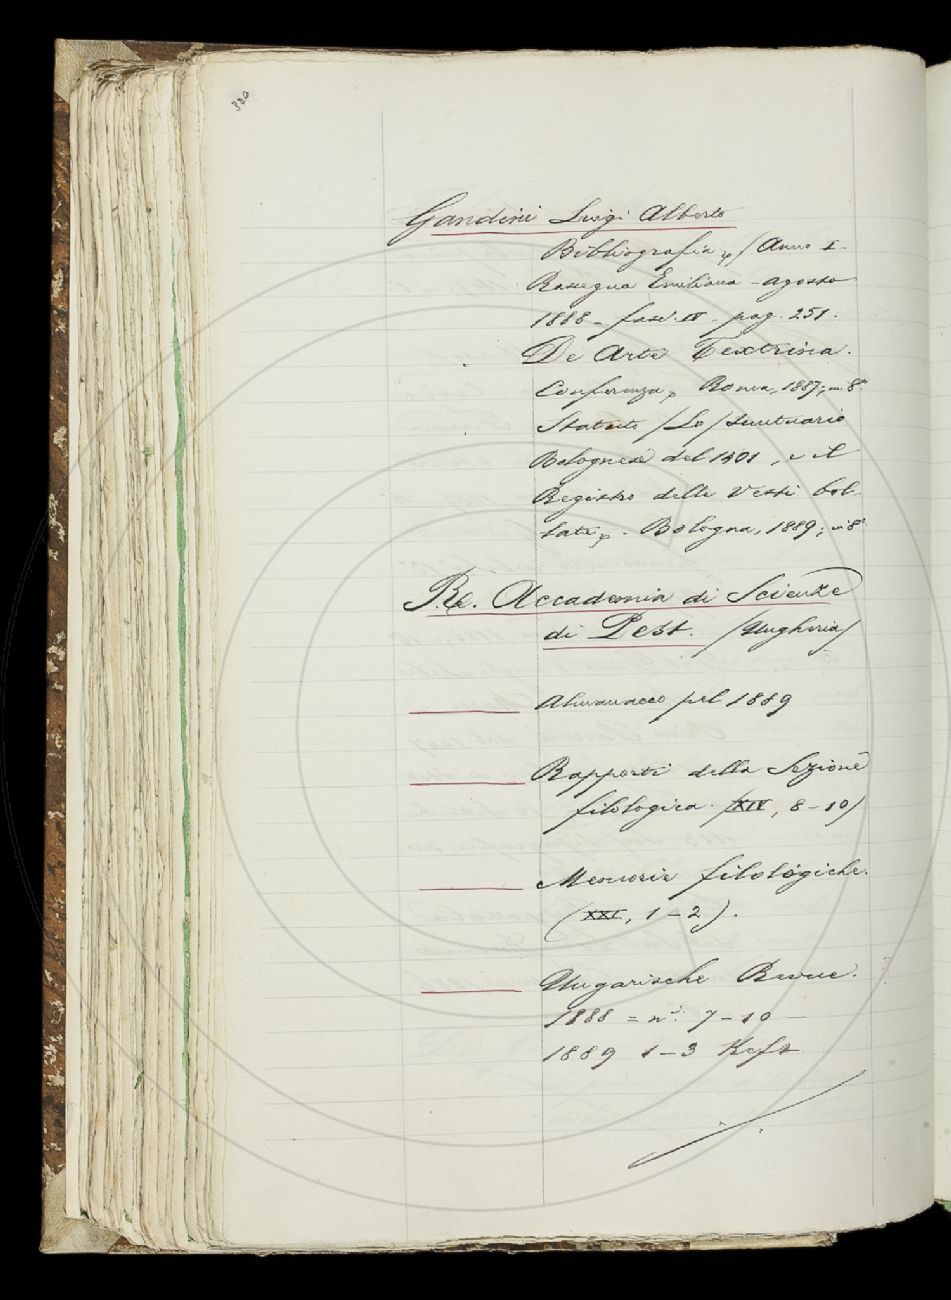 330
Gandini Luigi Alberto
Bibliografia, (Anno I -
Rassegna Emiliana - agosto
1888 - fasc. IV - pag. 251.
De Arte Textrina.
Conferenza, Roma, 1887; in 8°.
Statuto (Lo) suntuario
Bolognese del 1401, e il
Registro delle Vesti bol-
late, - Bologna, 1889; in 8°.
Re. Accademia di Scienze
di Pest. (Ungheria)
Almanacco pel 1889
Rapporti della Sezione
filologica. (XIV, 8-10)
Memorie filologiche.
(XXI, 1-2).
Ungarische Revue.
1888 = n.i 7-10 -
1889 1-3 Heft